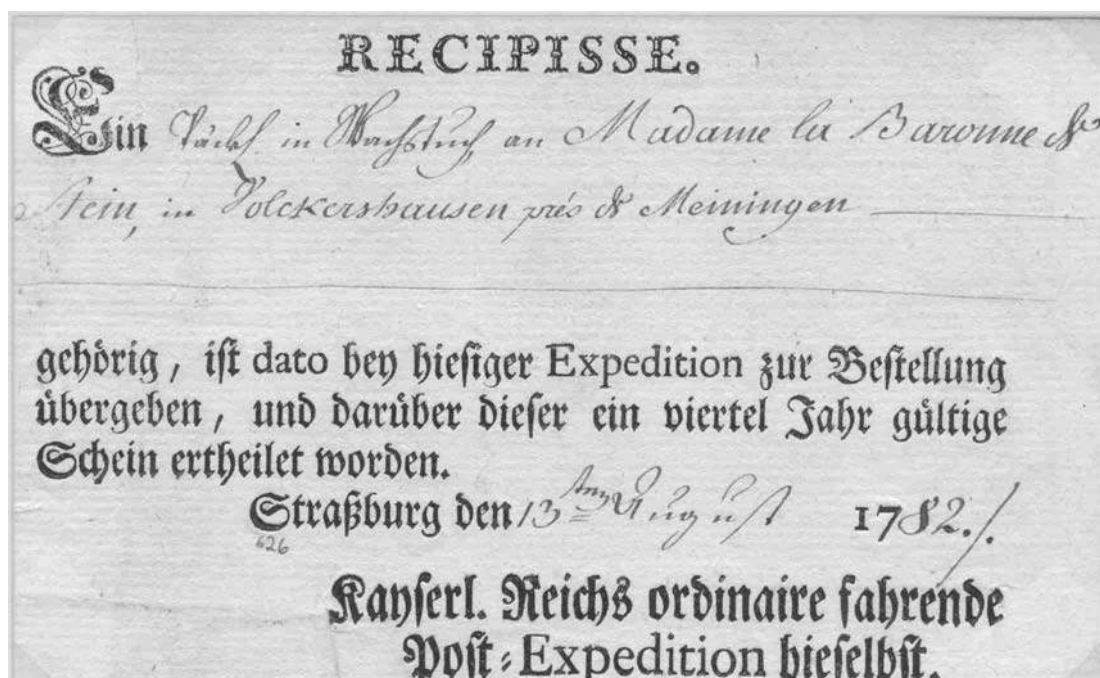 RECIPISSE.
Ein Päckl in Wachstuch an Madame la Baronne de
Stein, in Volckershausen près de Meiningen
gehörig, ist dato bey hiesiger Expedition zur Bestellung
übergeben, und darüber dieser ein viertel Jahr gültige
Schein ertheilet worden.
Straßburg den 13ten August 1782./.
626
Kayserl. Reichs ordinaire fahrende
Post-Expedition hieselbst.